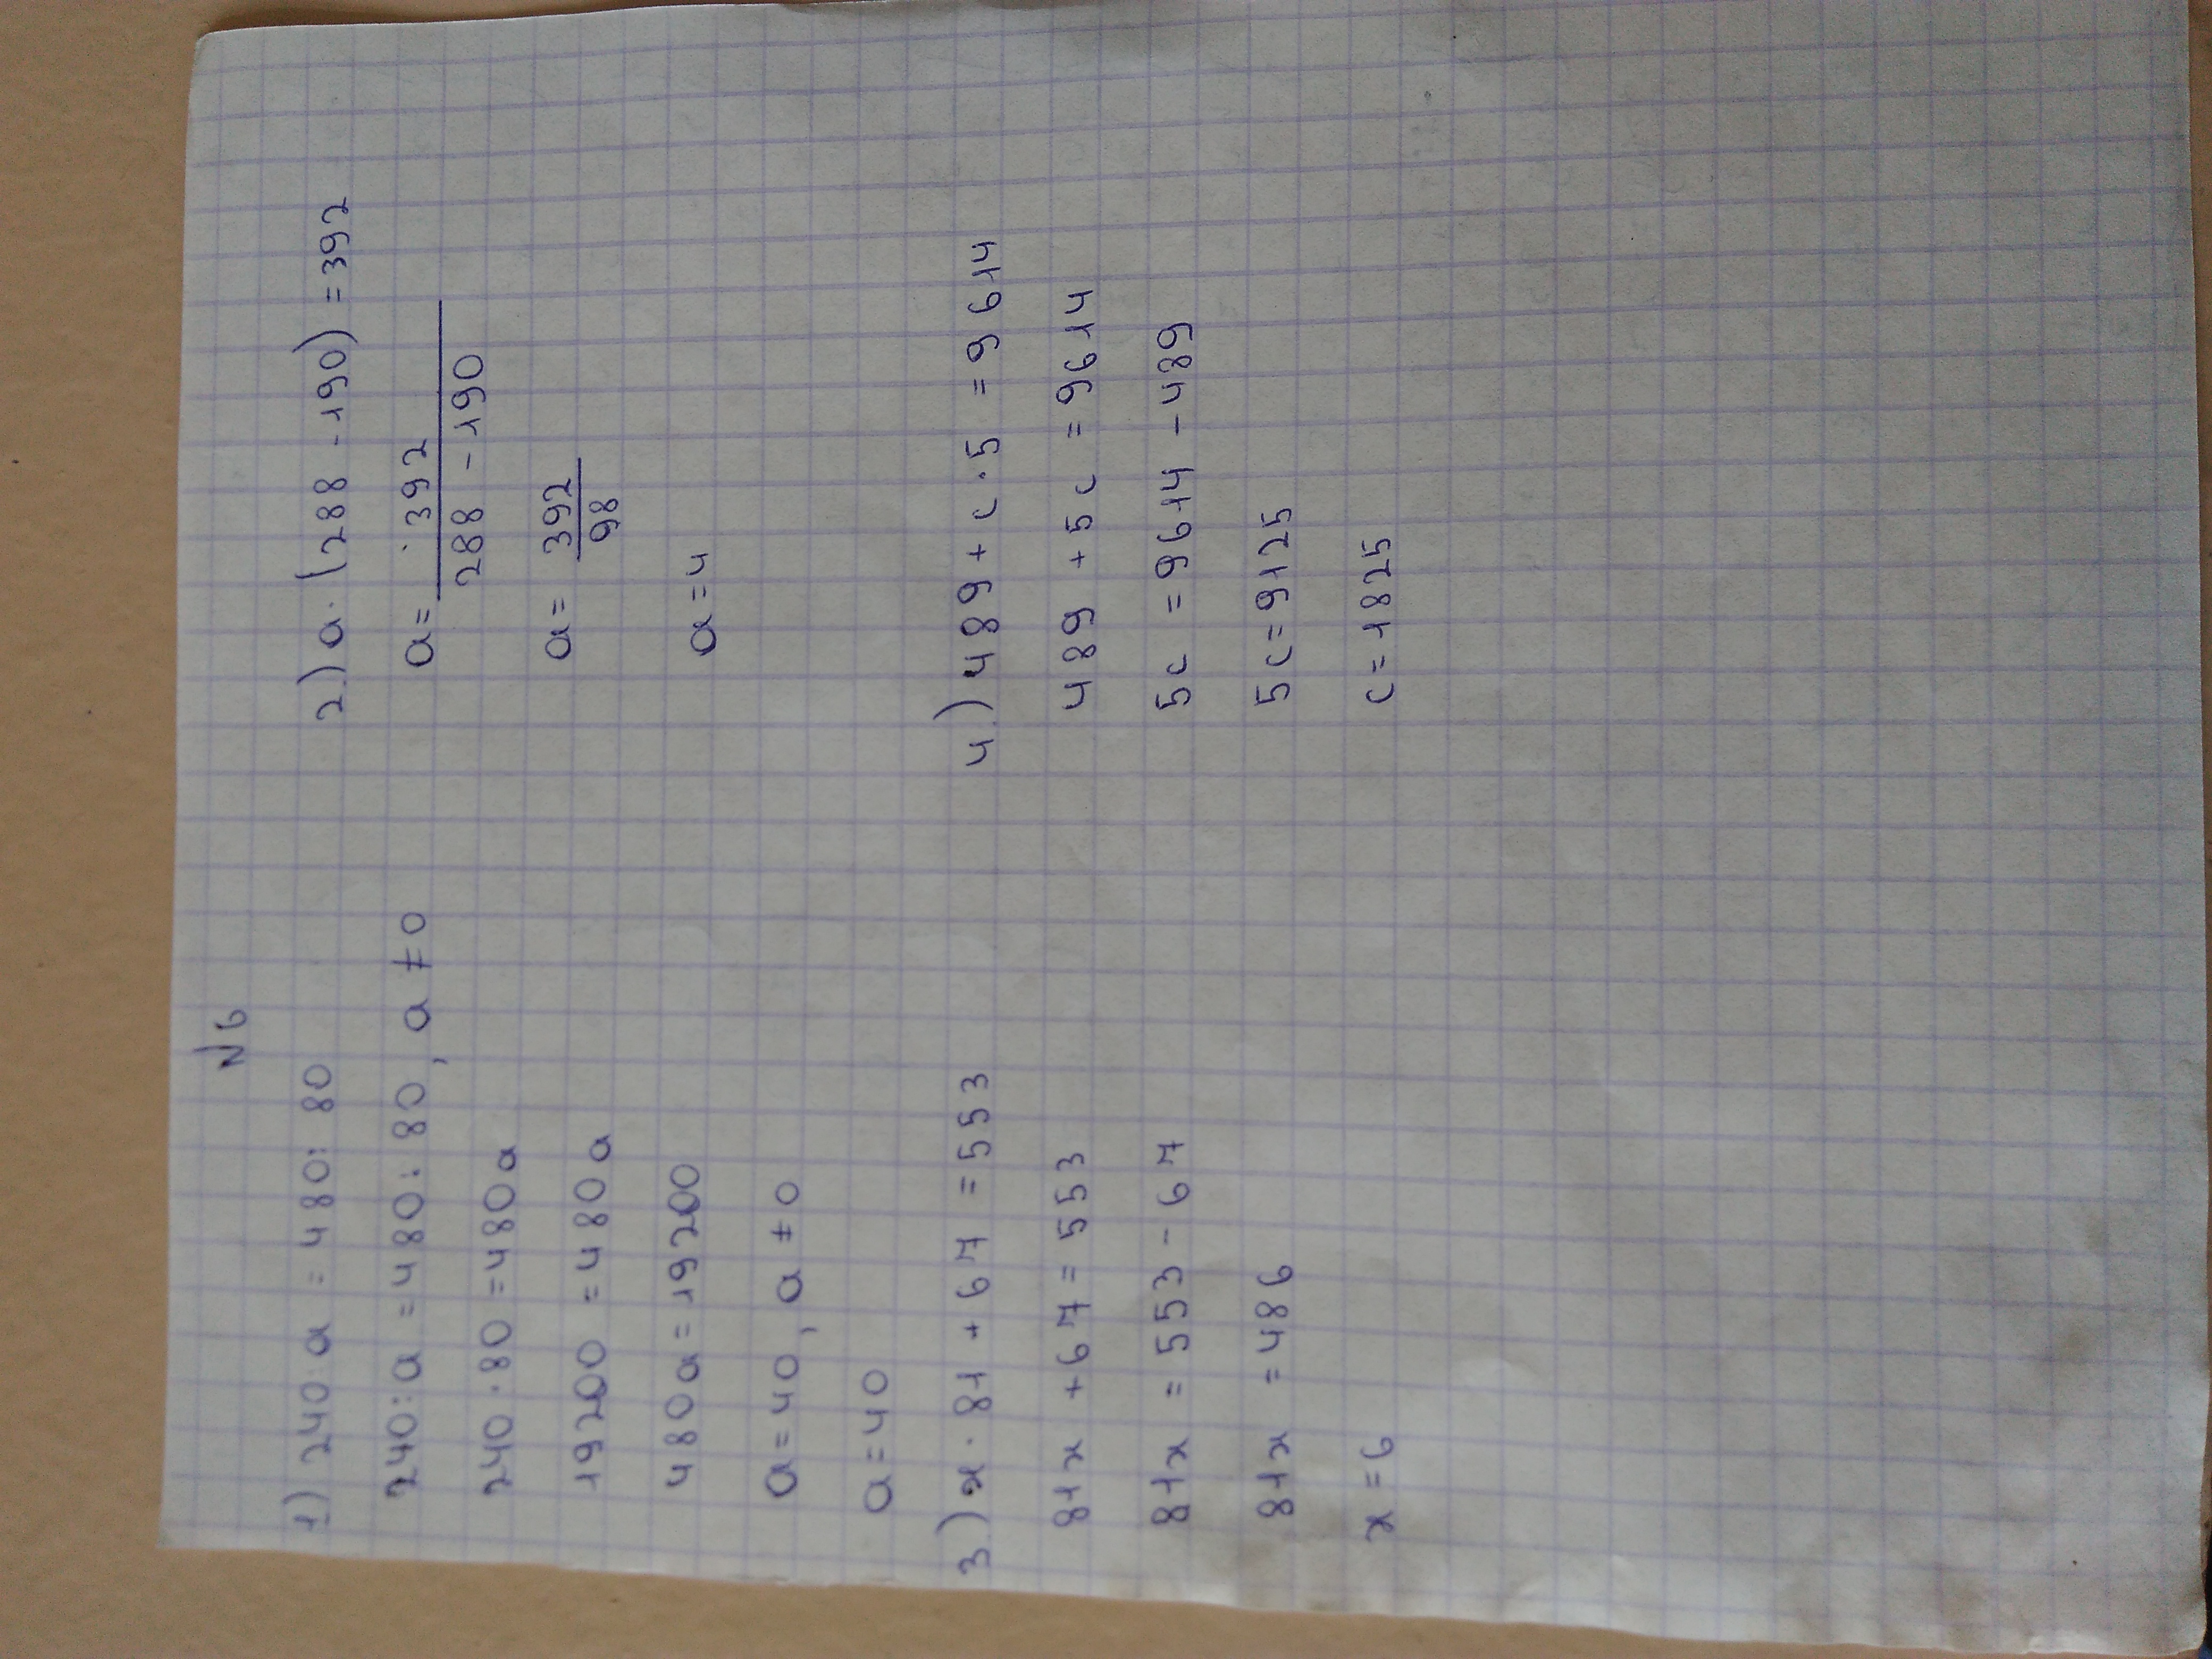 N6
1) 240:a = 480:80
240:a = 480:80, a ≠ 0
240·80 = 480a
19200 = 480a
480a = 19200
a = 40, a ≠ 0
a = 40
2) a·(288 - 190) = 392
a = 392
288 - 190
a = 392
98
a = 4
3) x·81 + 67 = 553
81x + 67 = 553
81x = 553 - 67
81x = 486
x = 6
4) 489 + c·5 = 9614
489 + 5c = 9614
5c = 9614 - 489
5c = 9125
c = 1825